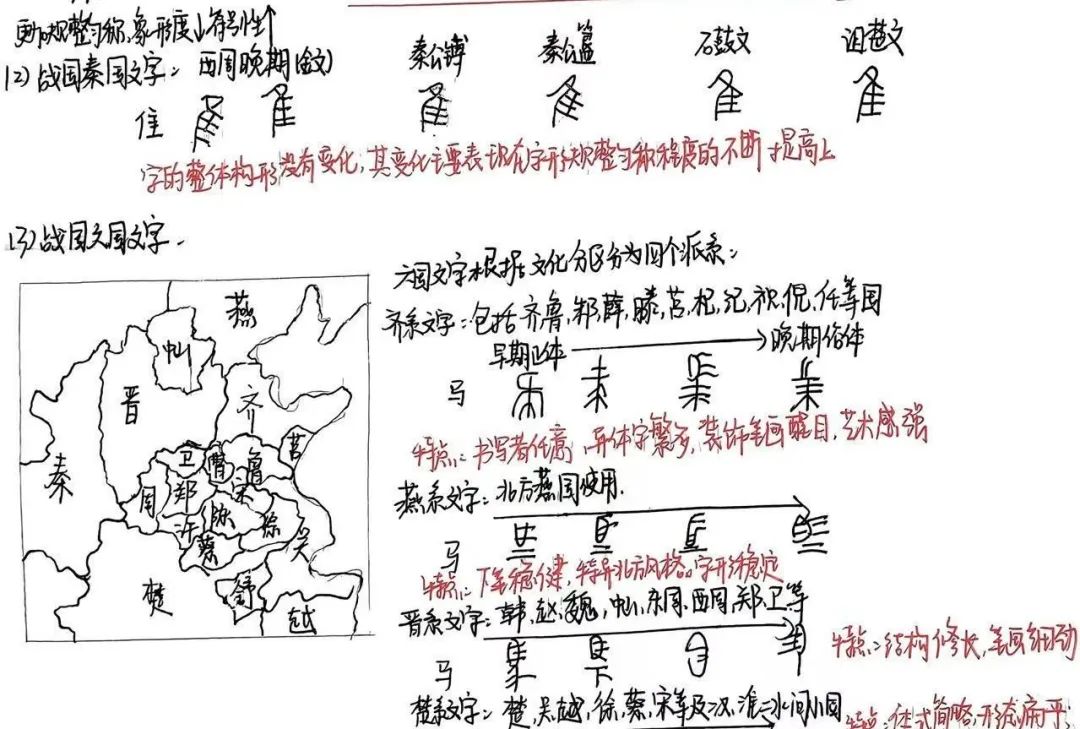 更加规整匀称,象形度↓符号性↑
(2)战国秦国文字: 西周晚期(金文) 秦公镈 秦公簋 石鼓文 诅楚文
隹
字的整体构形没有变化,其变化主要表现在字形规整匀称程度的不断提高上
(3)战国六国文字.
六国文字根据文化分区分为四个派系:
齐系文字:包括齐,鲁,邾,薛,滕,莒,杞,纪,祝,倪,任等国
早期正体 → 晚期俗体
马
特点:书写者任意,异体字繁多,装饰笔画醒目,艺术感强
燕系文字:北方燕国使用.
马
特点:下笔稳健,特异北方风格。字形稳定
晋系文字:韩,赵,魏,中山,东周,西周,郑,卫等
马
特点:结构修长,笔画细劲
楚系文字:楚,吴,越,徐,蔡,宋等及汉、淮二水间小国
特点:体式简略,形态扁平;
燕
中山
晋
齐
秦
卫
曹
鲁
莒
周
郑
宋
许
陈
徐
蔡
吴
楚
舒
越